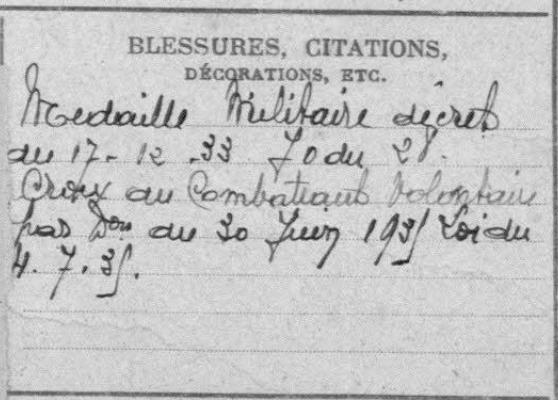 BLESSURES, CITATIONS,
DÉCORATIONS, ETC.
Medaille Militaire décret
du 17-12.33 JO du 28.
Croix du Combattant Volontaire
par Don du 30 Juin 1935 Loi du
4.7.35.